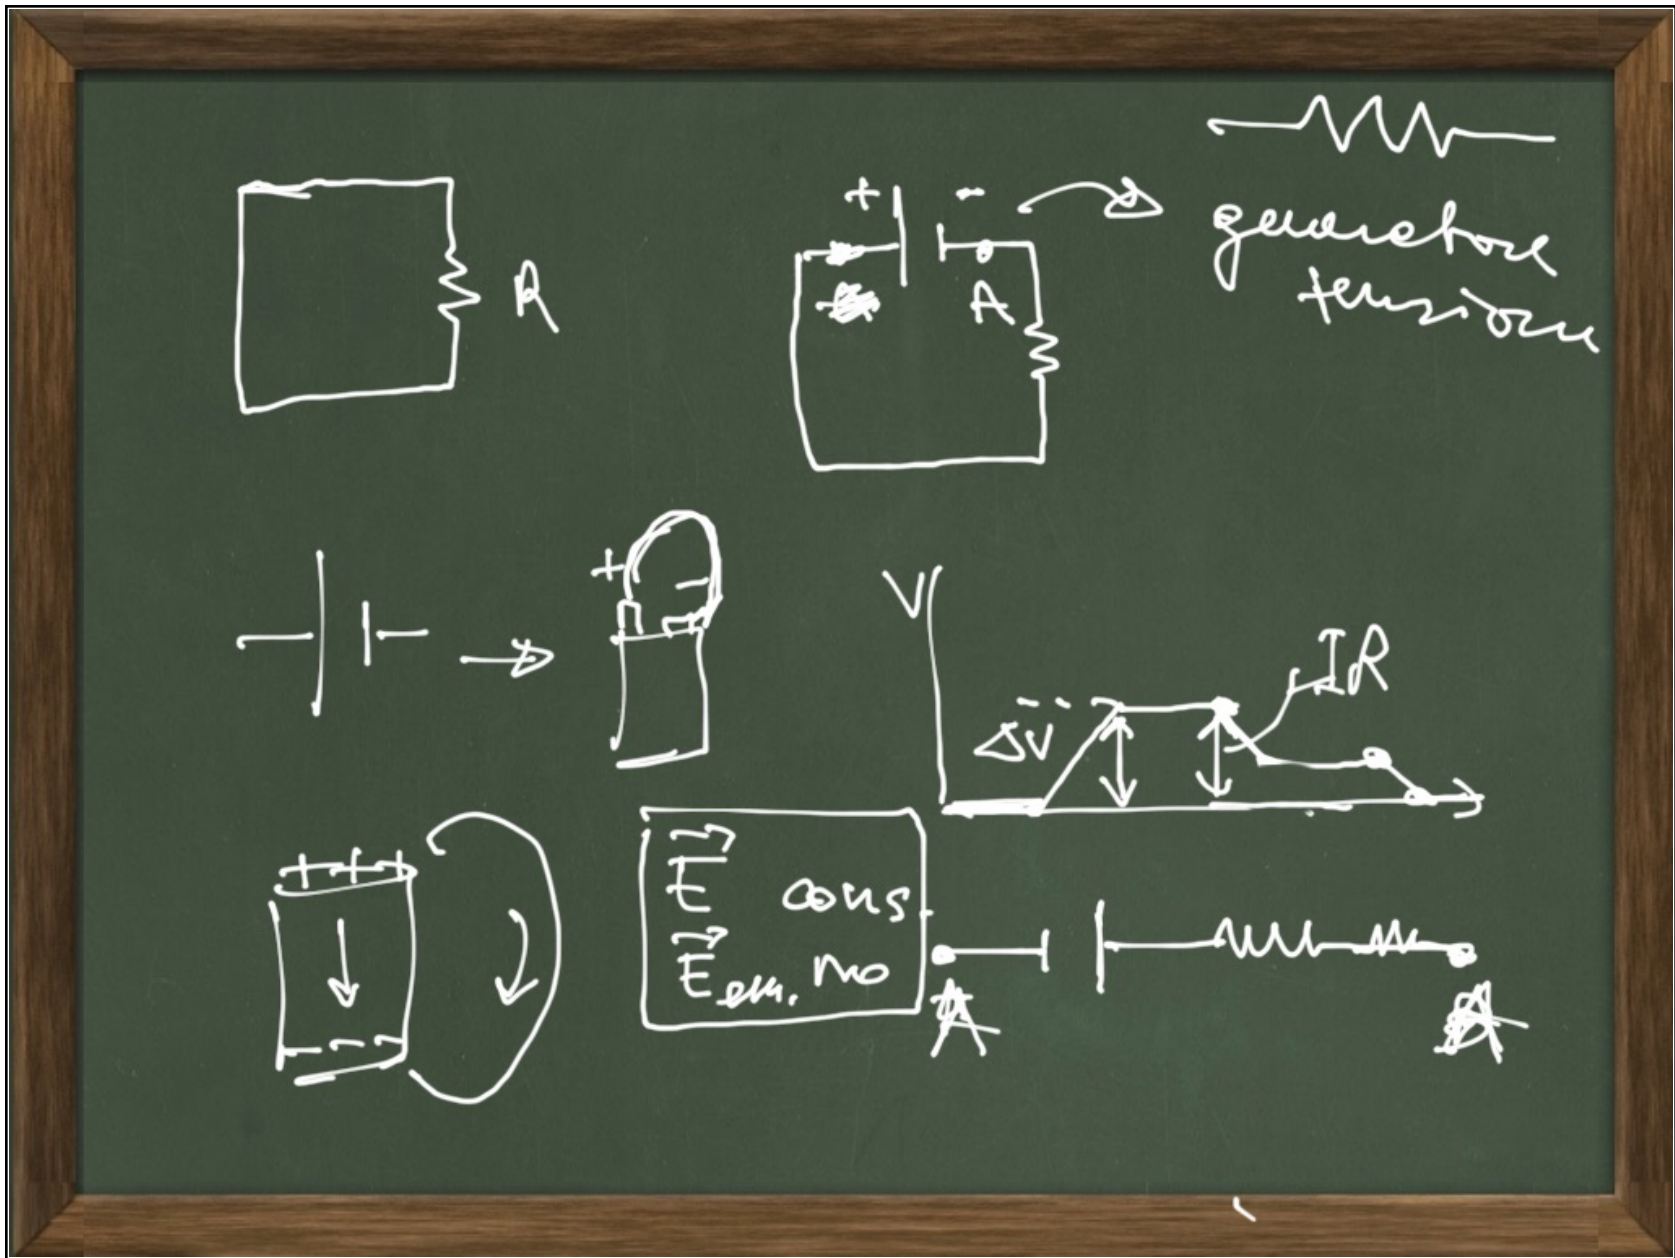 R
+ -
A
generatore
tensione
+ -
V
ΔV
IR
+ + +
- - -
E cons.
E em. no
A
A